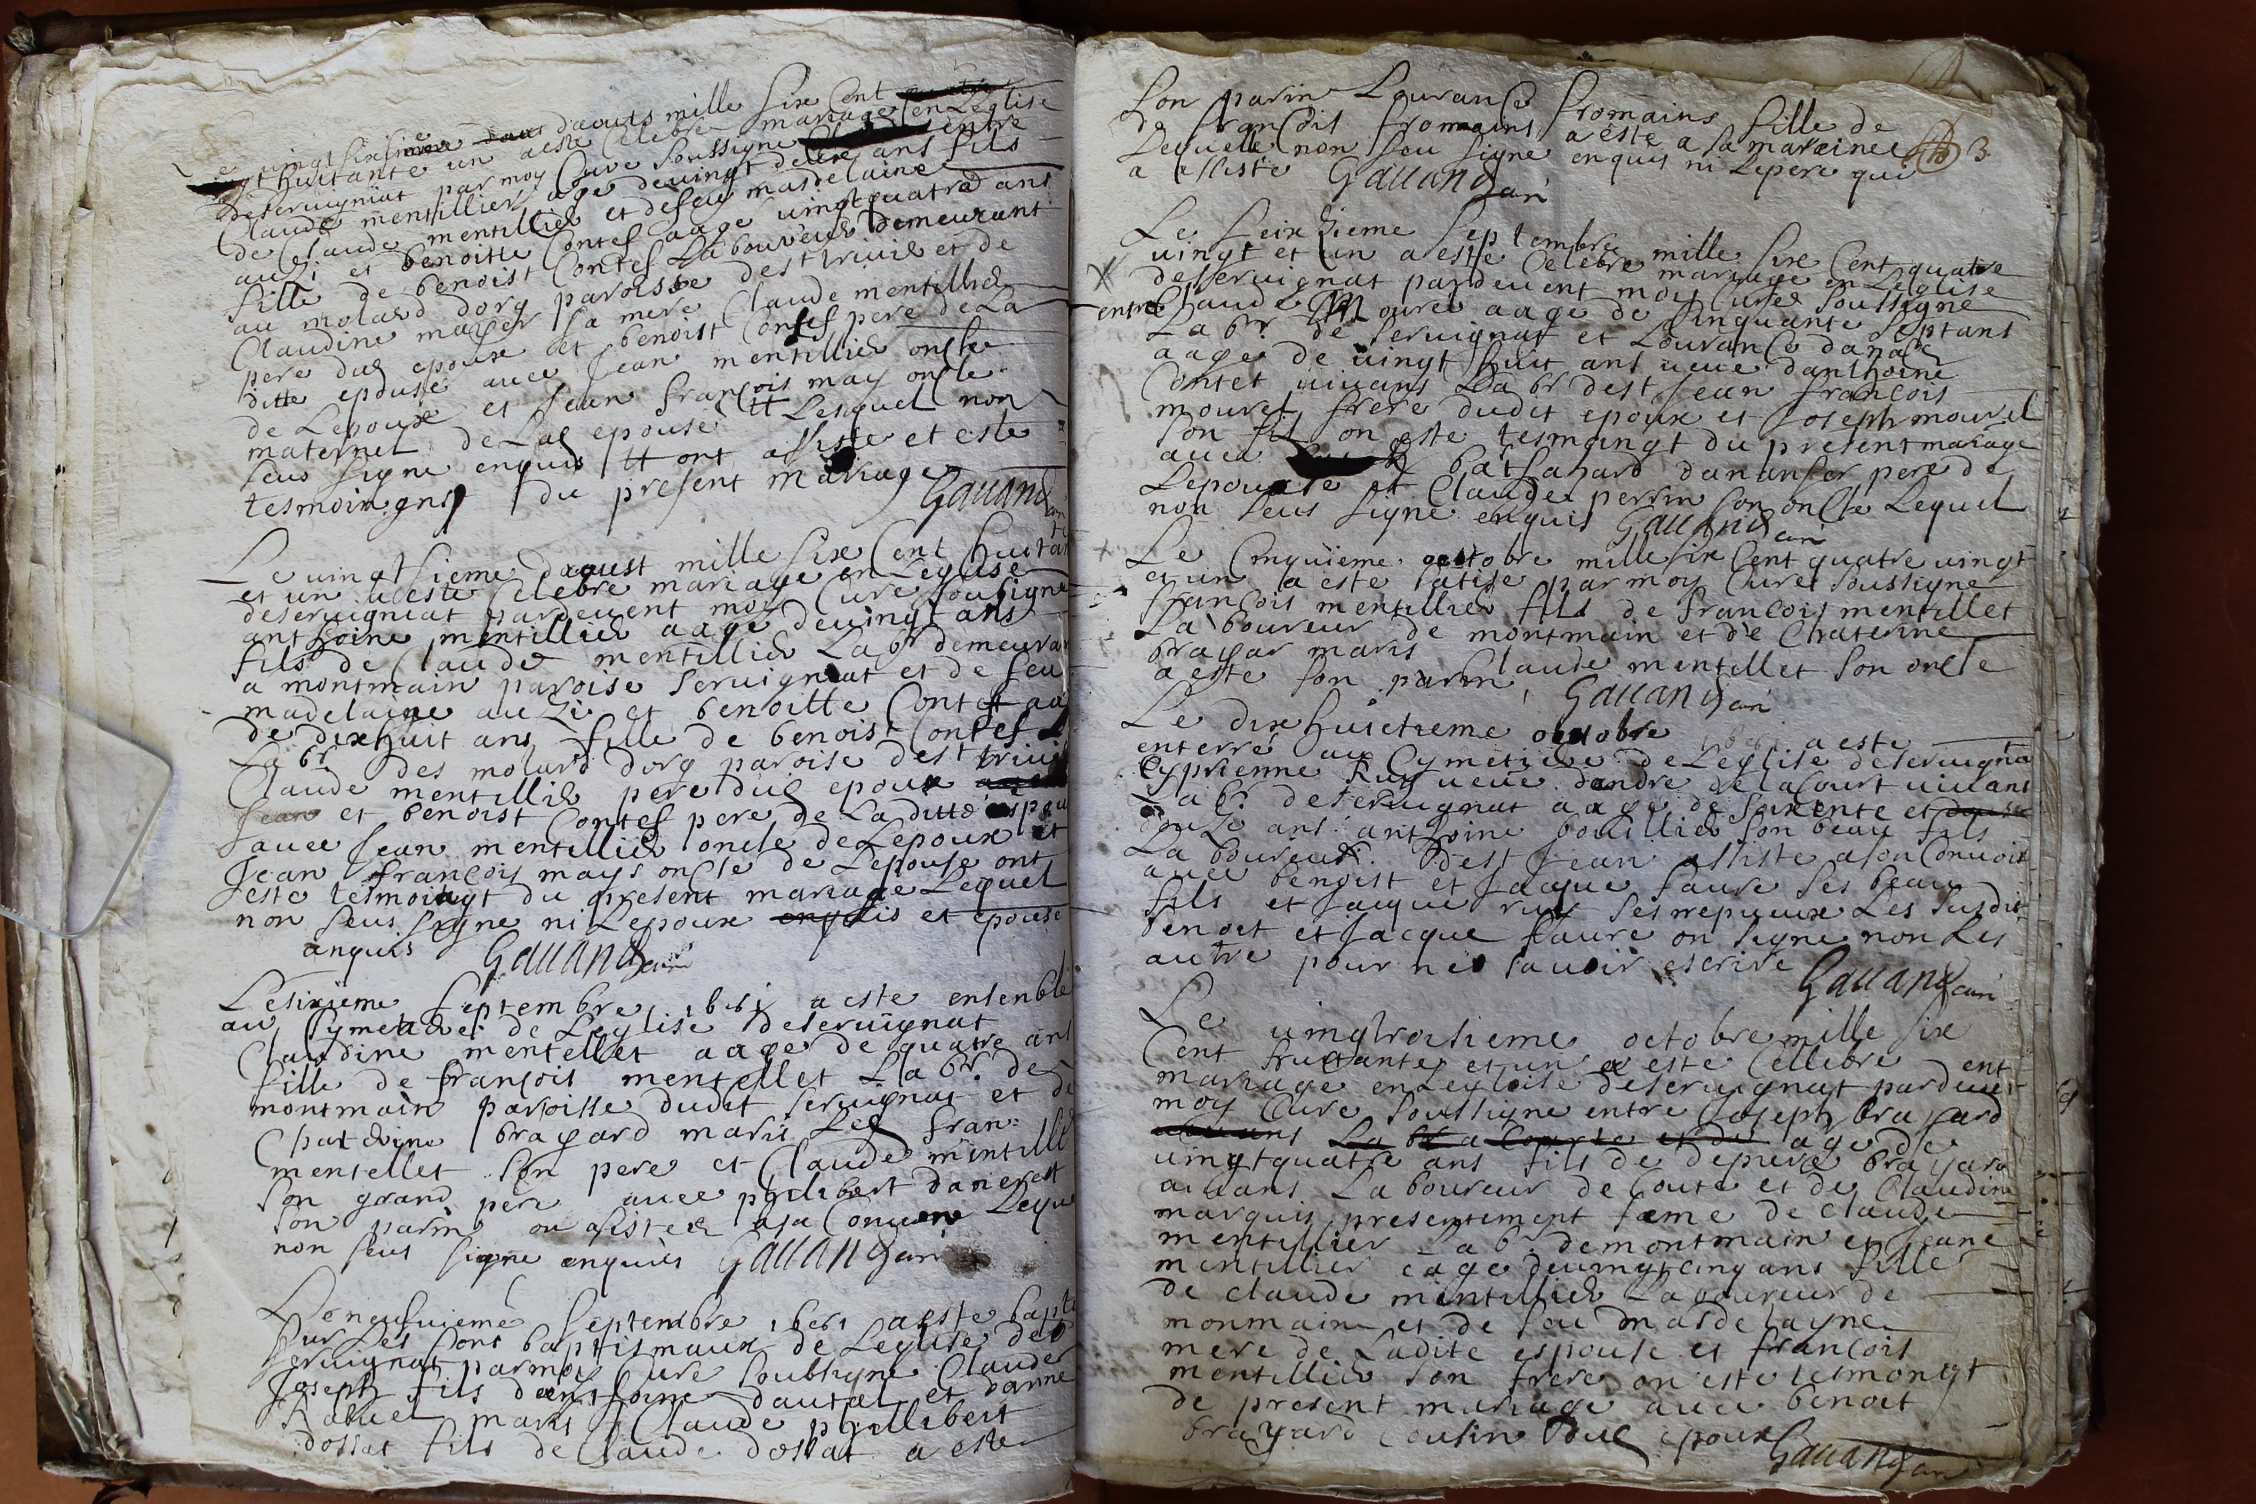 vingt sixieme daouts mille six Cent
vingt huitante un aeste Celebre mariage en Leglise
deseruigniat par moy Cure soussigne entre
Claude mentillier age devingt deux ans fils
de Claude mentillier et defeu masdelaine
auzi et benoitte Contes aage vingtquatre ans
fille de benoist Contes Laboureur demeurant
au molard dorg paroisse dest triuié et de
Claudine maiser sa mere Claude mentillier
pere dud epoux et benoist Contes pere de La
ditte epouse auec Jean mentillier oncle
de Lepoux et Jean François may oncle
maternel de Lad epouse Lesquel non
seus signe enquis Et ont assiste et este
tesmoingns du present mariage
Gauand curé
Le uingtsieme daoust mille six Cent huitan
et un aeste Celebre mariage en Leglise
deseruigniat pardeuent moy Cure sousigne
anthoine mentillier aage devingt ans
fils de Claude mentillier Labr demeuran
a montmain paroise seruigniat et de feu
madelaine auzi et benoitte Contet aa
de dixhuit ans fille de benoist Contes
Labr des molard dorg paroise dest triui
Claude mentillier pere dud epoux
Jean et benoist Contes pere de La ditte espou
auec Jean mentillier oncle de Lepoux et
Jean François mays oncle de Lepouse ont
este tesmoingt du present mariage Lequel
non seus signe ni Lepoux enquis et epouse
anquis Gauand curé
Lesixieme septembre 1681 a este ensenble
au Cymetiere de Leglise deseruignat
Claudine mentellet aage de quatre ans
fille de françois mentellet Labr de
montmain paroisse dudit seruignat et de
Chaterine brayard maris Led Fran
mentellet son pere et Claude mintille
son grand pere auec philibert danerest
son parin on asister asa Conuoie Lequ
non seus signe anquis Gauand curé
Leneufuieme septembre 1681 aeste bapti
sur Les fons baptismaux de Leglise de
seruignat parmoy Cure soubsigne Claude
Joseph fils danthoine dautal et danne
Rauel maris Claude phillibert
dossat fils de Claude dossat a este
son parin Louranse fromains fille de
de françois fromains a este a sa mareinee
Lequelle non seu signe enquis ni Lepere qui
a assiste Gauand curé
3
Le seixzieme septembre mille six Cent quatre
vingt et un aeste Celebre mariage en Leglise
deseruignat pardeuent moy Cures soussigne
entre Claude Mourel aage de sinquante septans
Labr de seruignat et Louranse danaser
aage de uingt huit ans ueue danthoine
Contet uiuans Labr dest Jean françois
mourel frere dudit epoux et Joseph mourel
son fils on este tesmaingt du present mariage
auec batsasard dananser pere de
Lepouse et Claude perrin son oncle Lequel
non seus signe enquis Gauand curé
Le Cinquieme octobre mille six Cent quatre vingt
et un a este batise parmoy Curé soussigne
françois mentillier fils de françois mentillet
Laboureur de montmain et de Chaterine
brayar maris Claude mentellet son oncle
a este son parin Gauand curé
Le dixhuictieme octobre 1681 a este
enterré au Cymetiere de Leglise deseruigna
Cyprienne Ruy ueue dandre delacourt uiuans
Labr deseruignat aage de soixente et
douze ans anthoine bouillier son beau fils
Laboureur dest Jean assiste a son Conuoit
auec benoist et Jacque faure ses beau
fils et Jacque ruy ses nepueux Les susdit
benoet et Jacque faure on signe non Les
autre pour ne sauoir escrire Gauand curé
Le uingtroisieme octobre mille six
Cent huictante et un a este Cellebre
mariage enLeglise deseruignat parduent
moy Cure soussigne entre Joseph brayard
age de
uingtquatre ans fils de depiere brayard
uiuans Laboureur de Coute et de Claudine
marquis presentement fame de Claude
mentillier Labr demontmain et Jeane
mentillier eage deuingtcinq ans fille
de Claude mentillier Laboureur de
monmain et de feu masdelayne
mere de Ladite espouse et françois
mentillier son frere on este tesmongt
de present mariage auec benoet
brayard Cousin dud epoux
Gauand curé